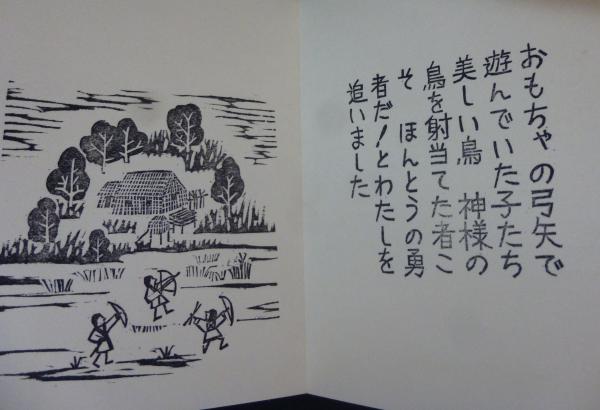 おもちゃの弓矢で
遊んでいた子たち
美しい鳥　神様の
鳥を射当てた者こ
そ　ほんとうの勇
者だ！とわたしを
追いました